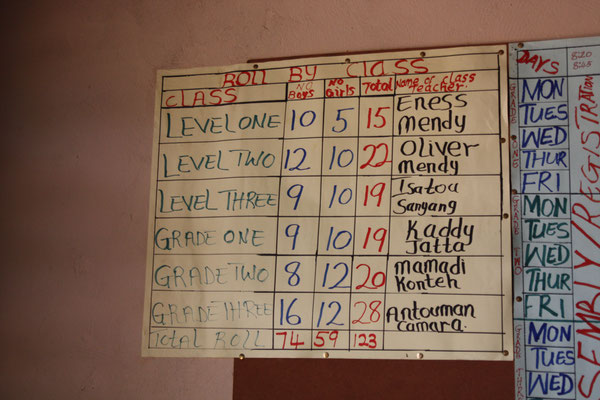 ROLL BY CLASS
CLASS NO Boys NO Girls Total Name of class Teacher.
LEVEL ONE 10 5 15 Eness Mendy
LEVEL TWO 12 10 22 Oliver Mendy
LEVEL THREE 9 10 19 Isatou Sanyang
GRADE ONE 9 10 19 Kaddy Jatta
GRADE TWO 8 12 20 Mamadi Konteh
GRADE THREE 16 12 28 Antouman Camara.
Total ROLL 74 59 123
DAYS
MON
TUES
WED
THUR
FRI
MON
TUES
WED
THUR
FRI
MON
TUES
WED
SEMBLY/REGISTRATION